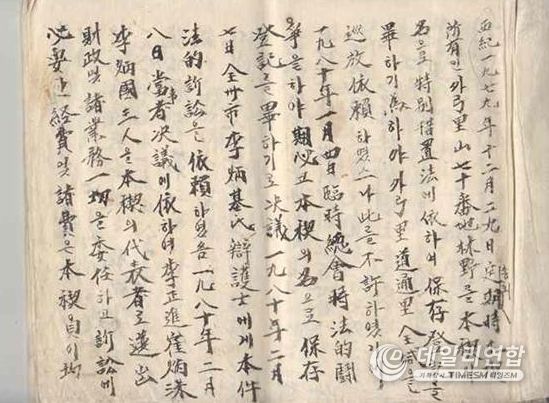 西紀一九七九年十二月二九日定期時
所有인外弓里山七十番地林野를本稧
名으로特別措置法에依하여保存登記를
畢하기爲하야外弓里道通里
依賴하였으나此를不許하였기
一九八十年一月四日臨時總會時法的鬪
爭을하야期必코本稧의名으로保存
登記를畢하기로決議一九八十年二月
七日全州市李炳基氏辯護士에게本件
法的訴訟을依賴하였음一九八十年二月
八日當事者決議에依하여李正進崔炳洙
李炳國三人을本稧의代表者로選出
財政및諸業務一切을委任하고訴訟에
必要한經費및諸費은本稧員이均
데일리연합
TIMESM